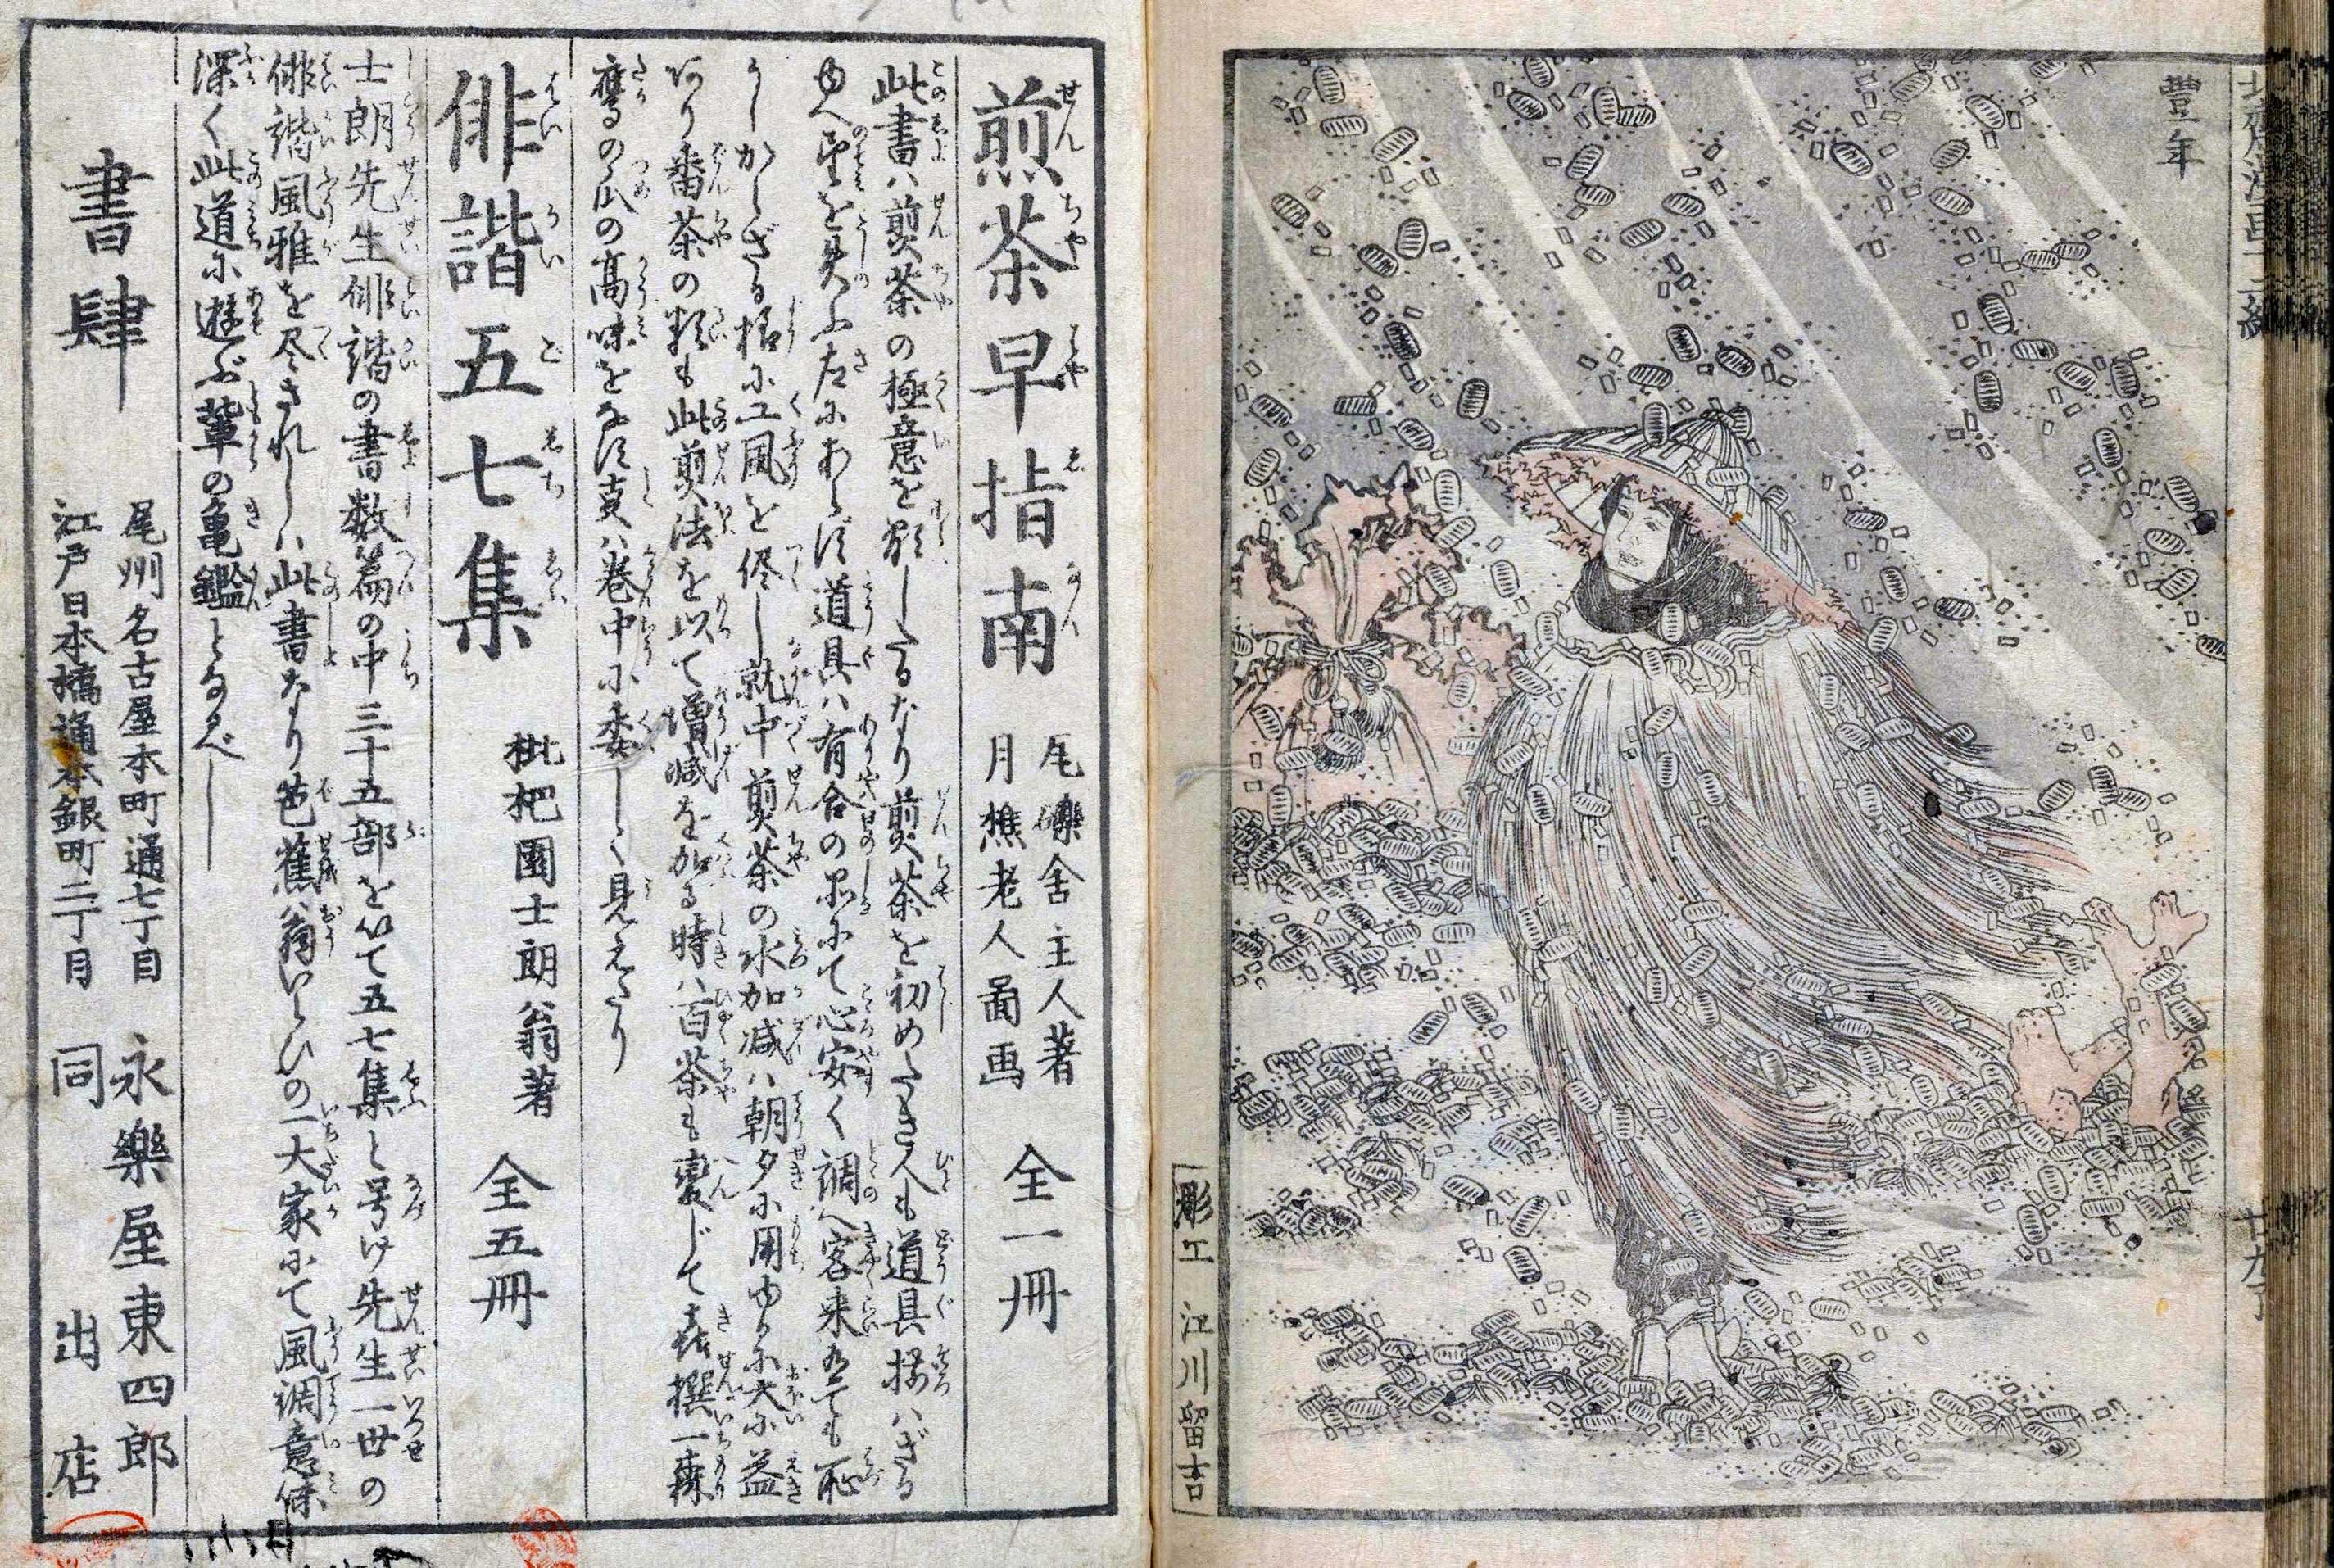 豊年
彫工 江川留吉
煎茶早指南
尾 舎主人著
月樵老人啚画
全一冊
此書ハ煎茶の極意を顕したるなり煎茶を初めたき人も道具揃ハざる
ゆへ望を失ふ左にあらず道具ハ有合の品にて心安く調へ客来ても恥
しからざる様に工風を尽し就中煎茶の水加減ハ朝夕に用ゆるに大に益
あり番茶の類も此煎法を以て増減を加る時ハ百茶も変じて喜撰一森
鷹の爪の高味をなす 巻中に委しく見えたり
俳諧五七集
枇杷園士朗翁著
全五冊
士朗先生俳諧の書数篇の中三十五部を以て五七集と号け先生一世の
俳諧風雅を尽されしハ此書なり芭蕉翁いらひの一大家にて風調意味
深く此道に遊ぶ輩の亀鑑となるべし
書肆
尾州名古屋本町通七丁目 永樂屋東四郎
江戸日本橋通本銀町二丁目 同 出店